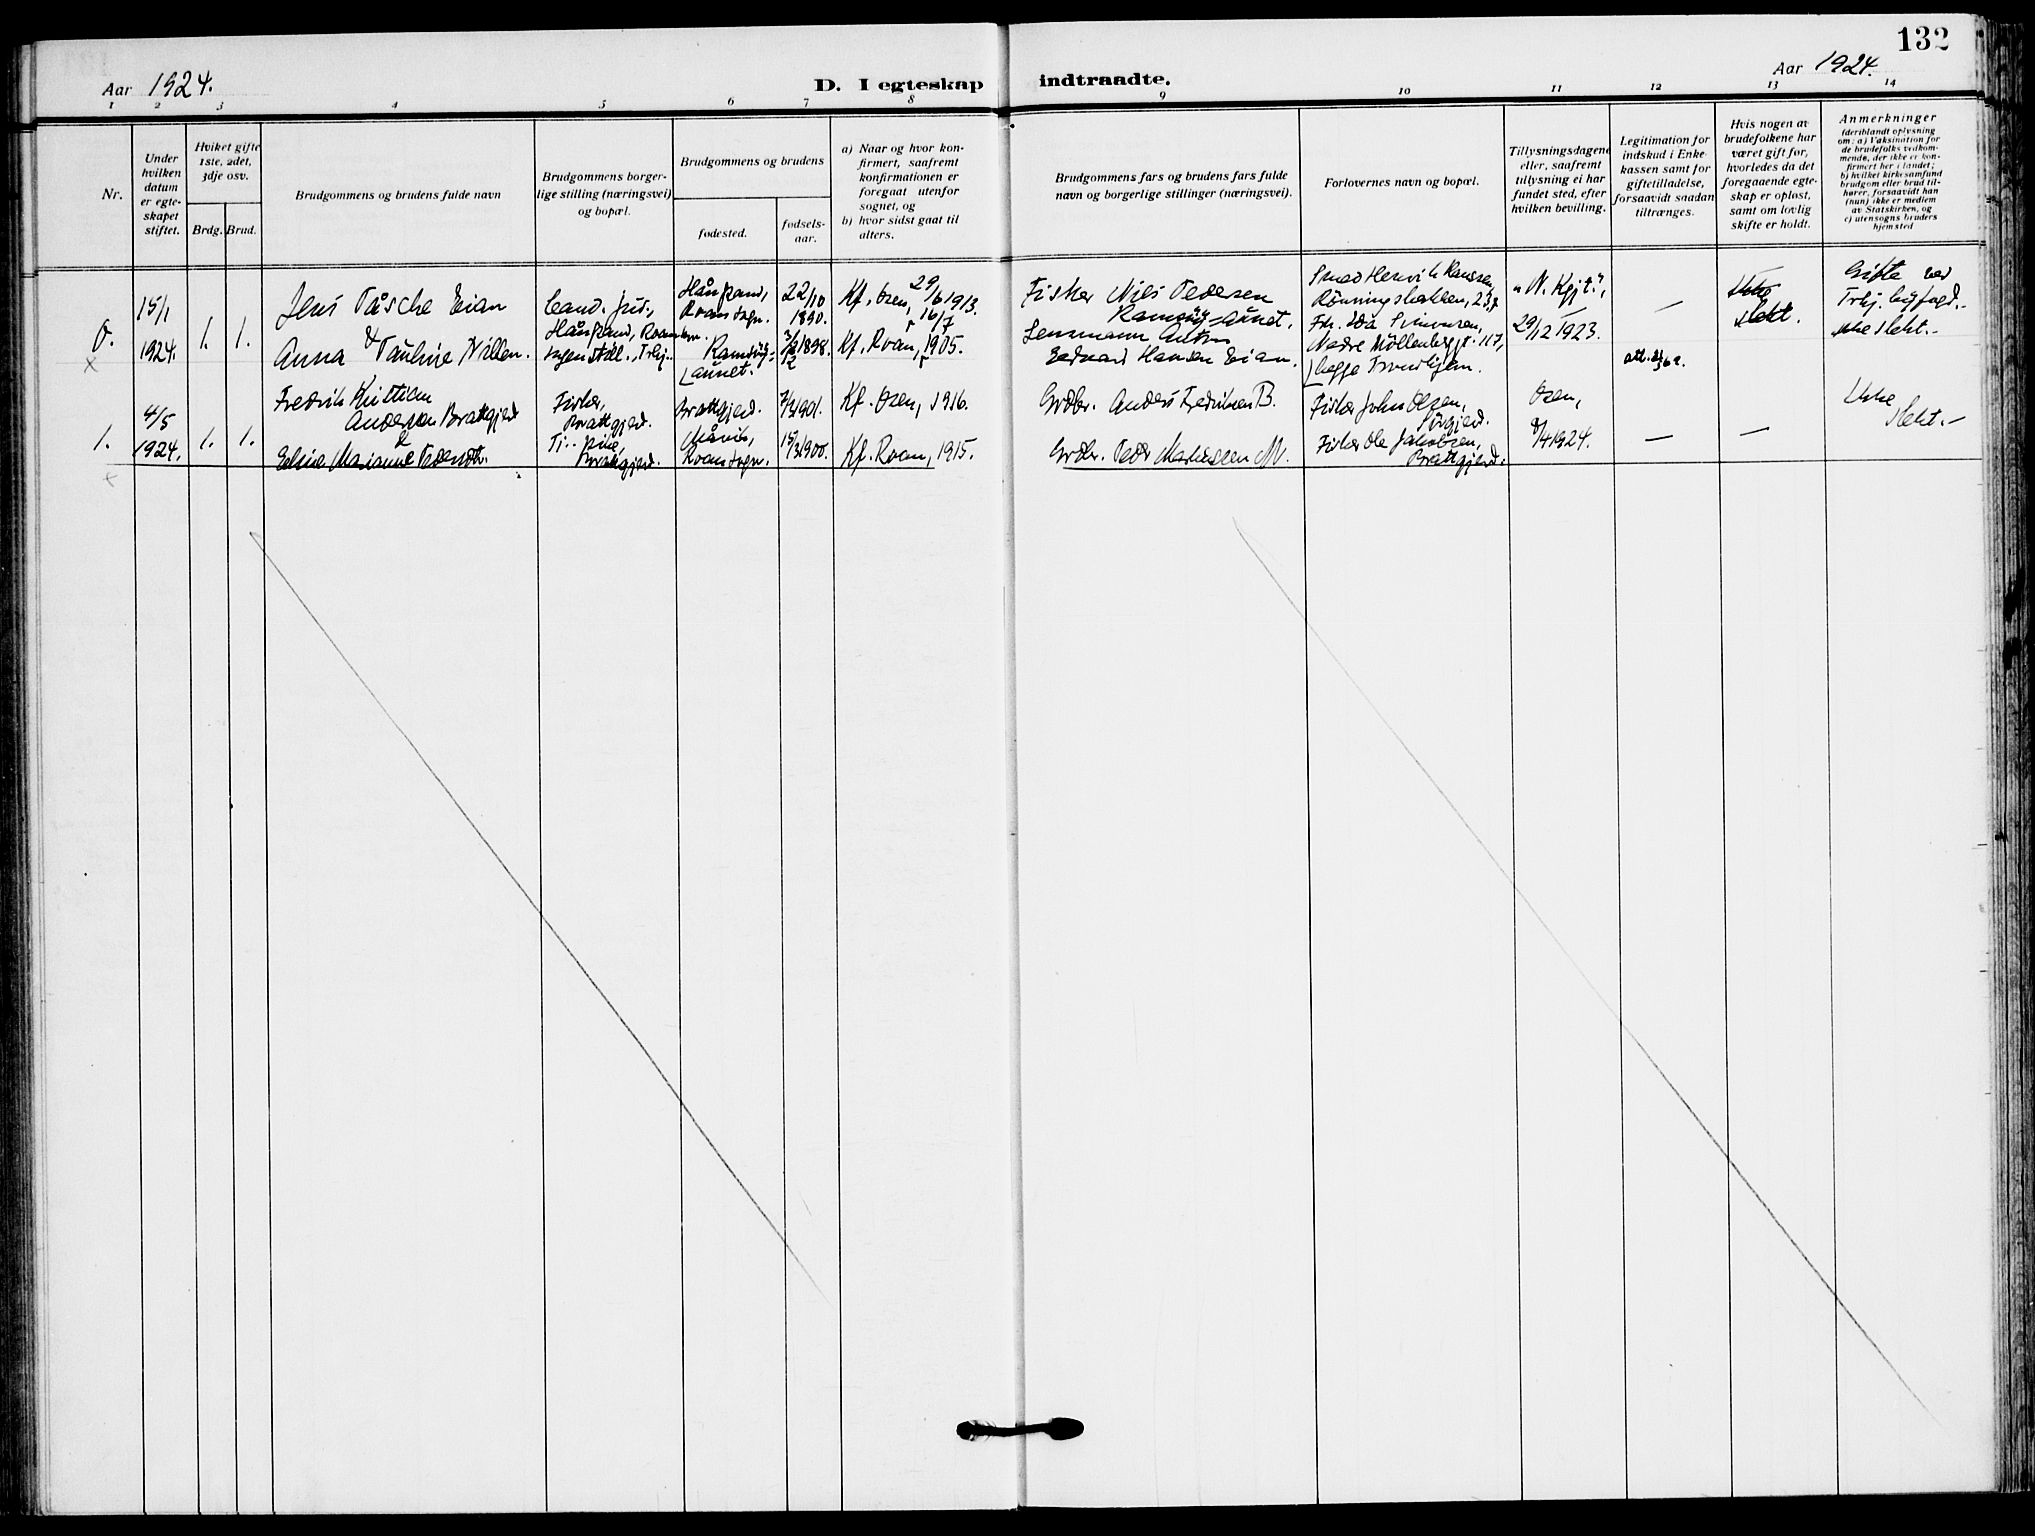 132
Aar 1924.
D. I egteskap indtraadte.
Aar 1924.
1 2 3 4 5 6 7 8 9 10 11 12 13 14
Nr.
Under
hvilken
datum
er egte-
skapet
stiftet.
Hvilket gifte
1ste, 2det,
3dje osv.
Brdg. Brud.
Brudgommens og brudens fulde navn
Brudgommens borger-
lige stilling (næringsvei)
og bopæl.
Brudgommens og brudens
fødested.
fødsels-
aar.
a) Naar og hvor kon-
firmert, saafremt
konfirmationen er
foregaat utenfor
sognet, og
b) hvor sidst gaat til
alters.
Brudgommens fars og brudens fars fulde
navn og borgerlige stillinger (næringsvei).
Forlovernes navn og bopæl.
Tillysningsdagene
eller, saafremt
tillysning ei har
fundet sted, efter
hvilken bevilling.
Legitimation for
indskud i Enke-
kassen samt for
giftetilladelse,
forsaavidt saadan
tiltrænges.
Hvis nogen av
brudefolkene har
været gift før,
hvorledes da det
foregaaende egte-
skap er opløst,
samt om lovlig
skifte er holdt.
Anmerkninger
(deriblandt oplysning
om: a) Vaksination for
de brudefolks vedkom-
mende, der ikke er kon-
firmert her i landet;
b) hvilket kirkesamfund
brudgom eller brud til-
hører, forsaavidt han
(hun) ikke er medlem
av Statskirken, og
c) utensogns bruders
hjemsted
0.
15/1
1924.
1. 1.
Jens Påsche Eian
&
Anna Pauline Nilsen.
Cand. jur.,
Roan
Trhj.
Roan sogn.
22/10
1890.
1898.
Kf. Osen, 29/6 1913.
Kf. Roan, 16/7 1905.
Fisker Nils Pedersen
Ramsöy-Aunet.
Lensmann Anton
Edvard Hansen Eian.
Smed Henrik Hanssen,
Rönningsbakken,
Frk. Ida
Nedre Möllenberggt. 117,
begge Trondhjem.
"N. Kgjt.",
29/12 1923.
—
Ikke
slekt.
Gifte ved
Trhj. byfogd.-
Ikke slekt.-
1.
4/5
1924.
1. 1.
Fredrik Kristian
Anderssen Brattgjerd
&
Edine Marianne
Fisker,
Brattgjerd.
Brattgjerd.
Brattgjerd.
Roan sogn.
1901.
1900.
Kf. Osen, 1916.
Kf. Roan, 1915.
Grdbr. Anders Fredriksen B.
Grdbr. Peder Mariussen M.
Fisker John Olsen,
Sörgjerd.
Fisker Ole Jakobsen,
Brattgjerd.
Osen,
1924.
—
—
Ikke
slekt.-